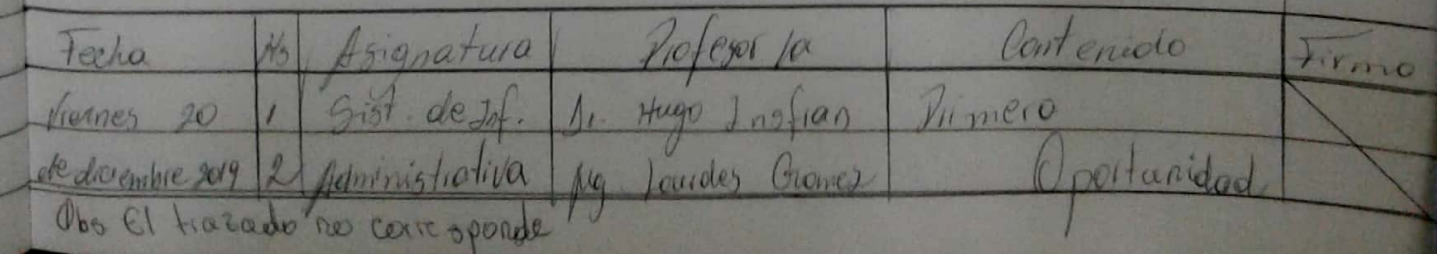 Fecha Nº Asignatura Profesor/a Contenido Firma
Viernes 20 1 Sist. de Inf. Dr. Hugo Insfran Primera
de diciembre 2019 2 Administrativa Mg Lourdes Gomez Oportunidad
Obs El trazado no corresponde